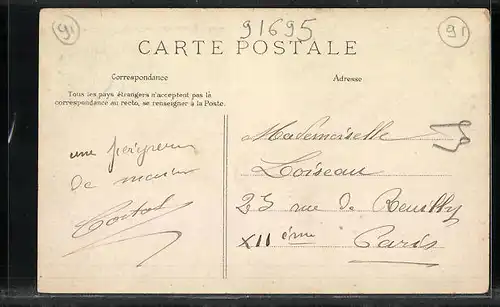 91
91695
91
CARTE POSTALE
Correspondance
Adresse
Tous les pays étrangers n'acceptent pas la
correspondance au recto, se renseigner à la Poste.
Mademoiselle
Loiseau
une
de
23 rue de Reuilly
XII ème
Paris